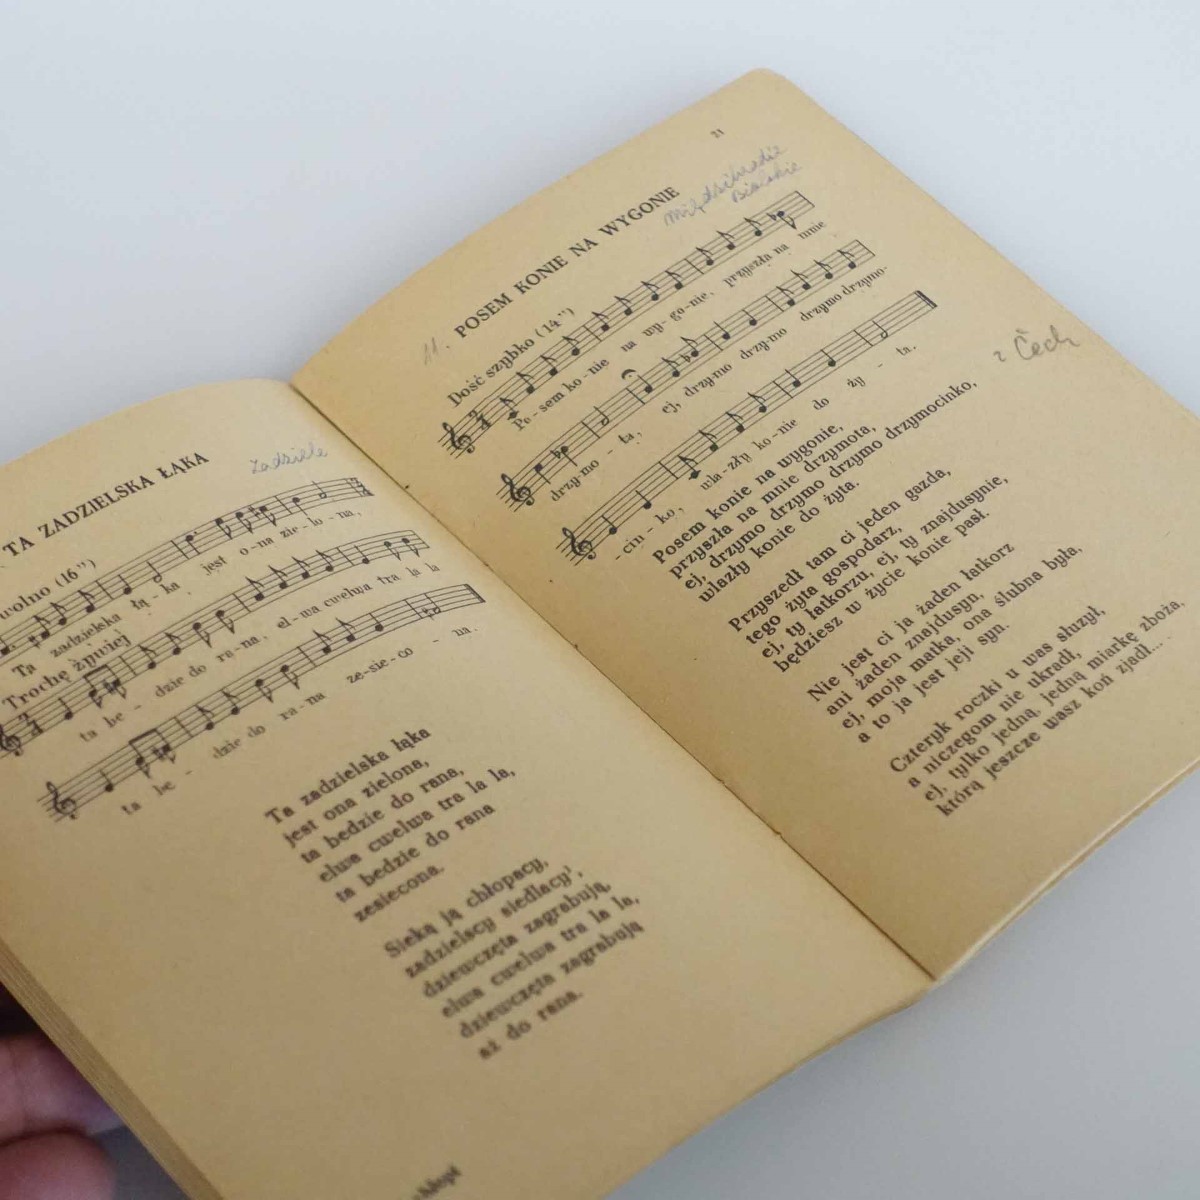 TA ZADZIELSKA ŁĄKA
Zadziele
wolno (16")
Ta zadzielska łą-ka jest o-na zie-lo-na,
Trochę żywiej
ta bę - dzie do ra-na, el-wa cwelwa tra la la
ta bę - dzie do ra-na ze-sie-co - na.
Ta zadzielska łąka
jest ona zielona,
ta bedzie do rana,
elwa cwelwa tra la la,
ta bedzie do rana
zesiecona.
Sieką ją chłopacy,
zadzielscy siedlacy¹,
dziewczęta zagrabują,
elwa cwelwa tra la la,
dziewczęta zagrabują
aż do rana.
chłopi
21
Międzibrodzie
Bialskie
11. POSEM KONIE NA WYGONIE
Dość szybko (14")
Po-sem ko-nie na wy-go-nie, przyszła na mnie
drzy-mo - ta, ej, drzy-mo drzy-mo drzymo drzymo-
-cin-ko, wla-zły ko-nie do ży - ta.
z Čech
Posem konie na wygonie,
przyszła na mnie drzymota,
ej, drzymo drzymo drzymo drzymocinko,
wlazły konie do żyta.
Przyszedł tam ci jeden gazda,
tego żyta gospodarz,
ej, ty łatkorzu, ej, ty znajdusynie,
będziesz w życie konie pasł.
Nie jest ci ja żaden łatkorz
ani żaden znajdusyn,
ej, moja matka, ona ślubna była,
a to ja jest jeji syn.
Czteryk roczki u was służył,
a niczegom nie ukradł,
ej, tylko jedną, jedną miarkę zboża,
którą jeszcze wasz koń zjadł...